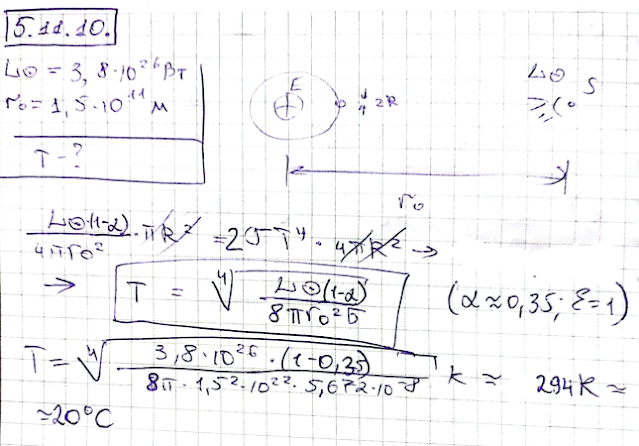 5.11.10.
L☉ = 3,8·10²⁶ Вт
r₀ = 1,5·10¹¹ м
T - ?
E
2R
L☉ S
r₀
L☉(1-α)/4πr₀² · πR² = 2σT⁴ · 4πR² →
→ T = ⁴√(L☉(1-α)/8πr₀²σ) (α≈0,35; ε=1)
T = ⁴√(3,8·10²⁶·(1-0,35)/8π·1,5²·10²²·5,672·10⁻⁸) K ≈ 294K ≈
≈20°C